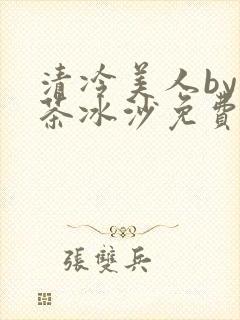 清冷美人by
茶冰沙免費
張雙兵